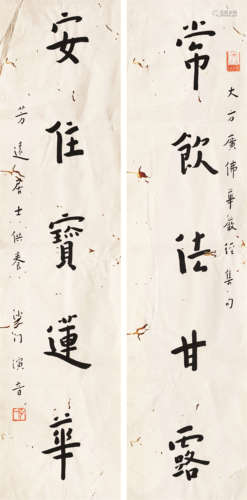 常飲法甘露
大方廣佛華嚴經集句
安住寶蓮華
芳遠居士供養
沙門演音